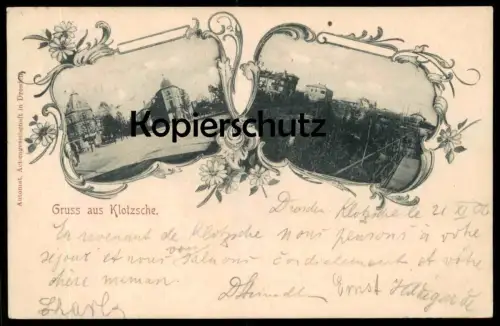 Kopierschutz
Automat, Actiengesellschaft in Dresden
Gruss aus Klotzsche.
Dresden Klotzsche le 21 XI
En revenant de Klotzsche nous pensons à votre
séjour et nous vous saluons cordialement et votre
chère maman.
Ernst Hildegarde
Charly